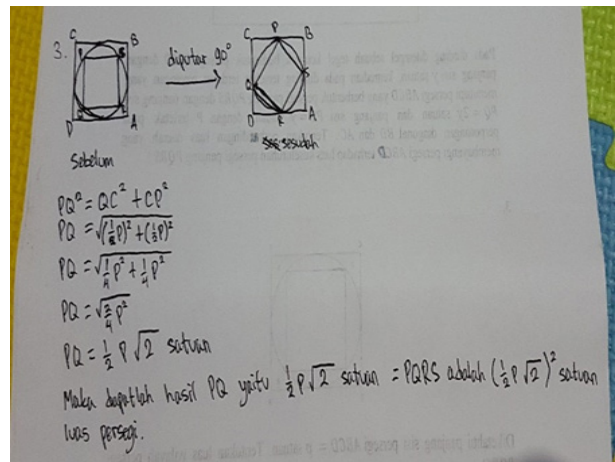 3.
C B
P S
Q R
D A
Sebelum
diputar 90°
C P B
Q S
D R A
sesudah
PQ² = QC² + CP²
PQ = √(½P)² + (½P)²
PQ = √¼P² + ¼P²
PQ = √2/4 P²
PQ = ½ P √2 satuan
Maka dapatlah hasil PQ yaitu ½ P √2 satuan = PQRS adalah (½ P √2)² satuan
luas persegi.